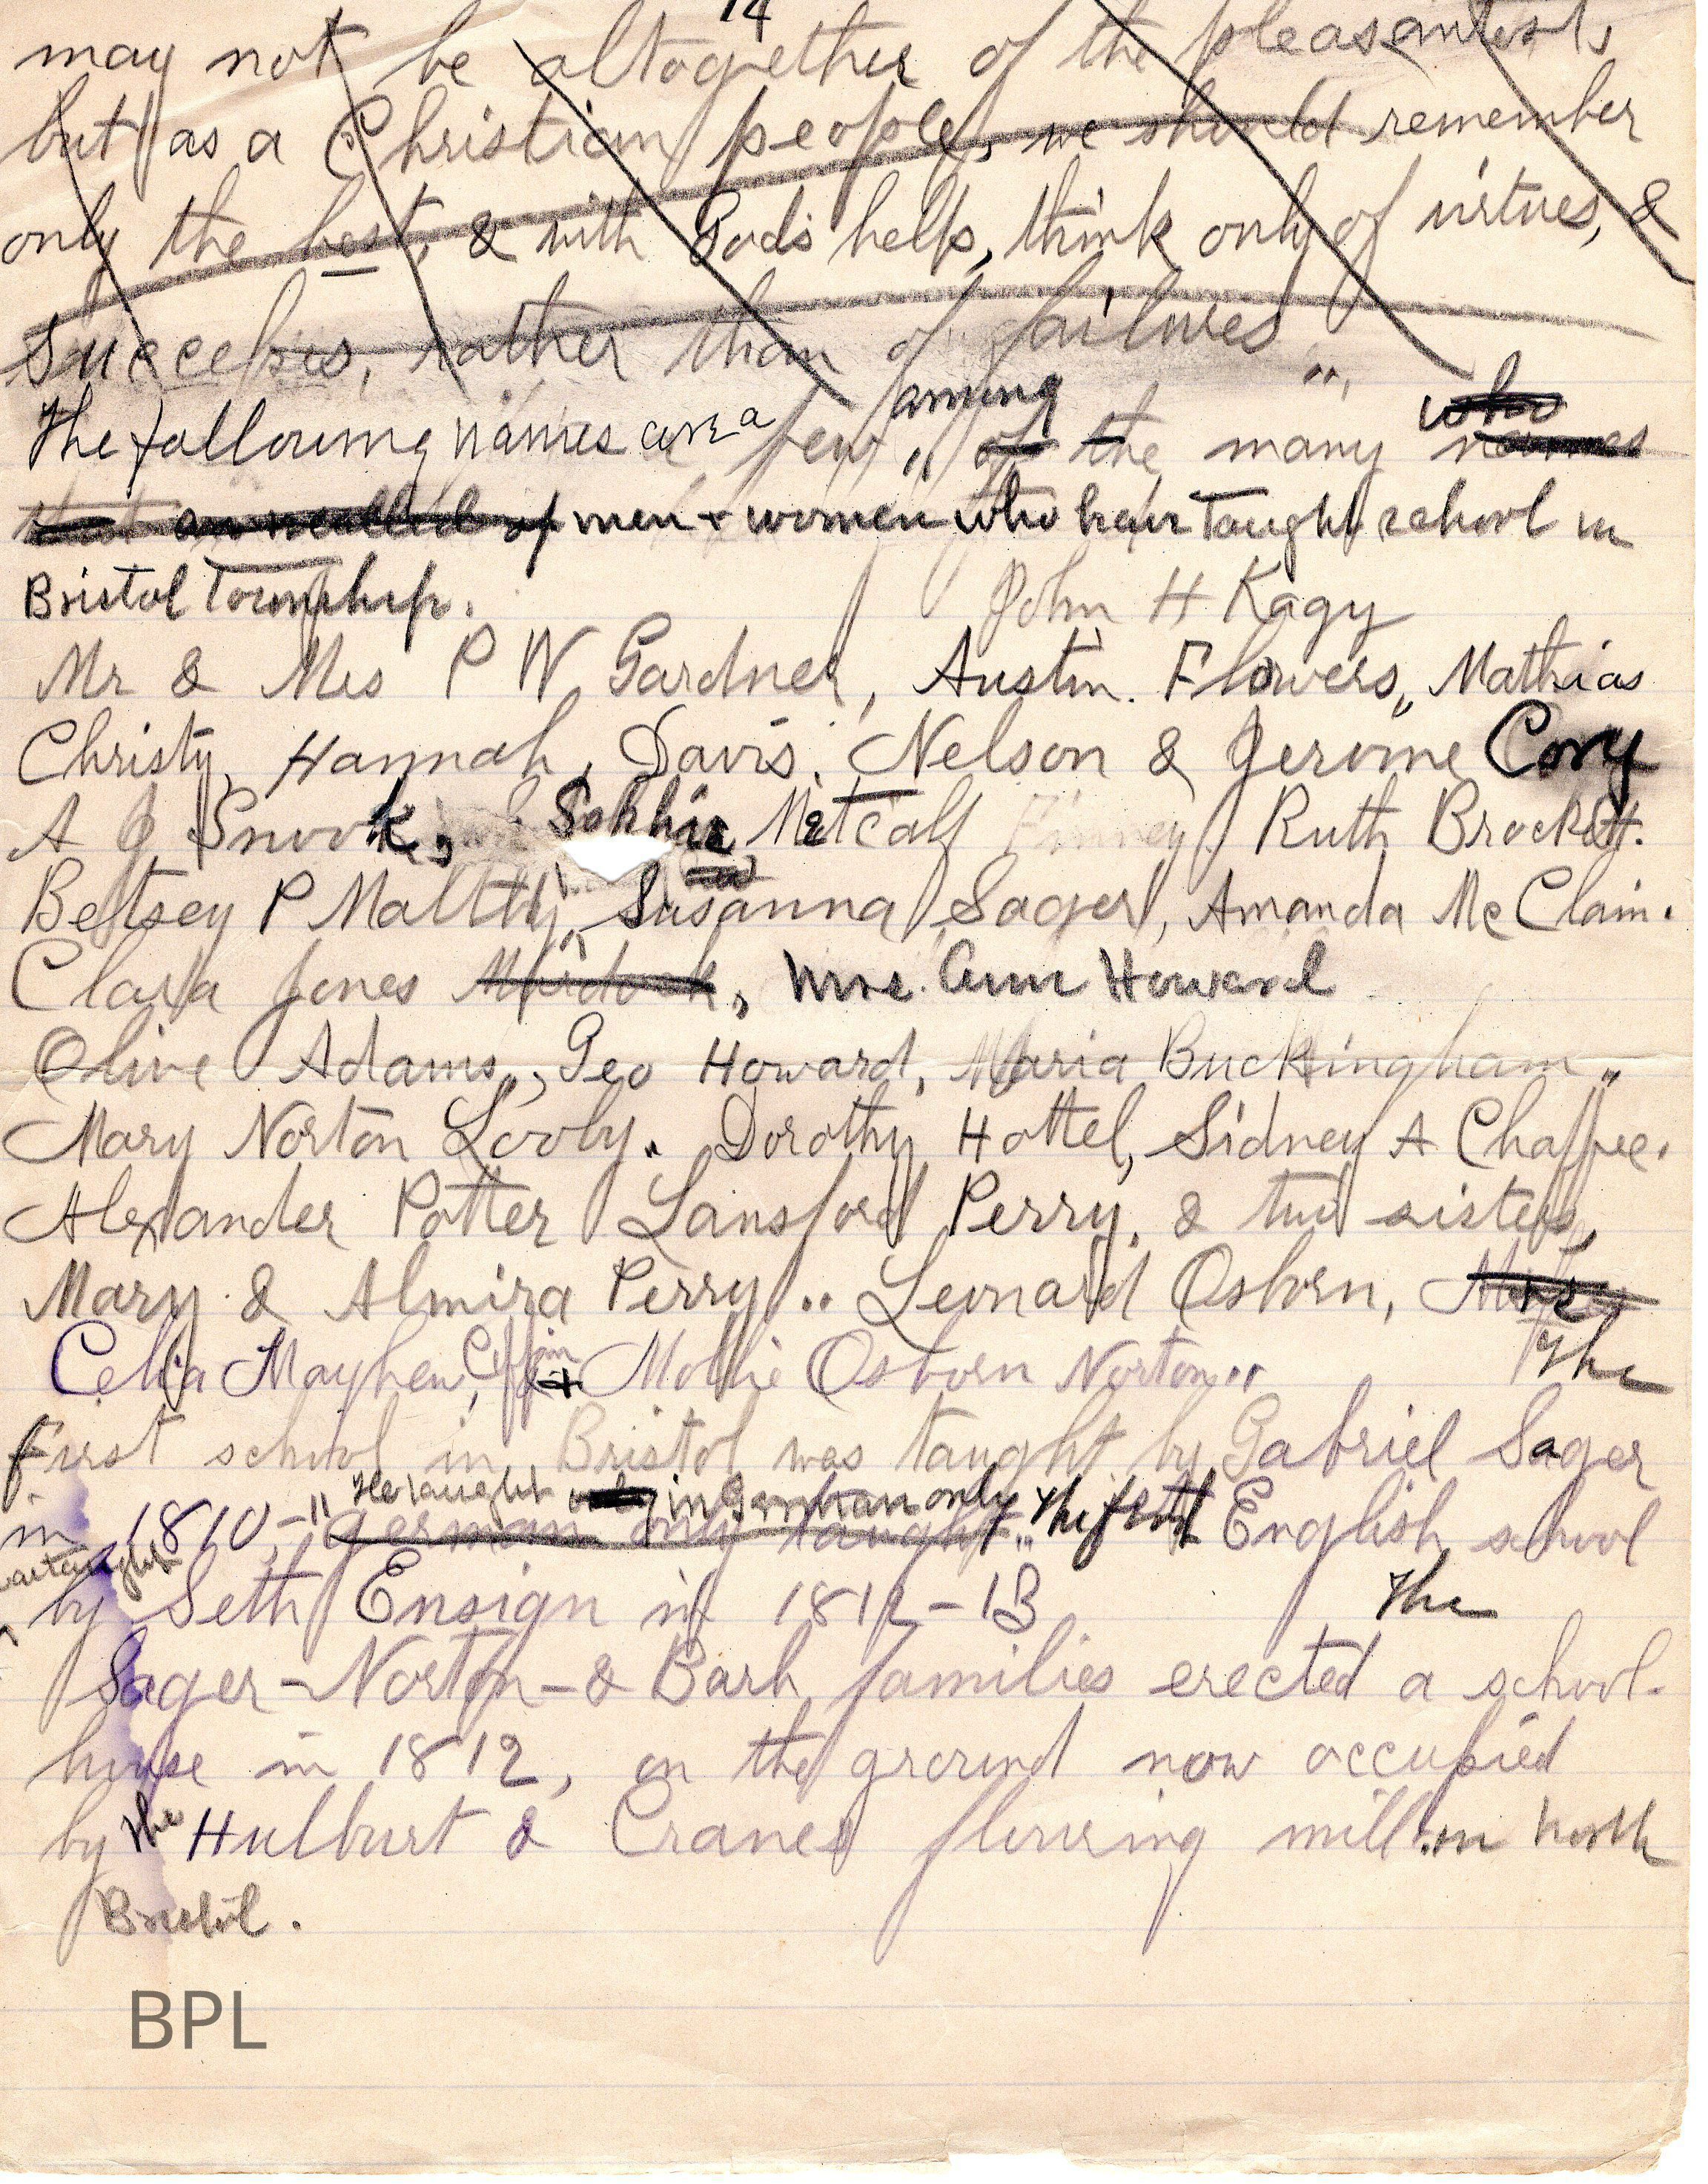 14
may not be altogether of the pleasantests
but as a Christian people, we should remember
only the best, & with Gods help, think only of virtues, &
Successes, rather than of failures ,,
among who
The following names are a few ,, of the many names
that are recalled of men + women who have taught school in
Bristol Township. John H Kagy
Mr & Mrs P W Gardner, Austin. Flowers,, Mathias
Christy, Hannah, Davis. Nelson & Jerome Cory
A J Snook, Sophie Metcalf Finney Ruth Brockett.
Betsey P Maltby,, Susanna Sager, Amanda Mc Clain.
Clara Jones Murdock, Mrs. Ann Howard
Olive Adams,, Geo Howard, Maria Buckingham ,,
Mary Norton Looby. Dorothy Hottel, Sidney A Chaffee.
Alexander Potter Lansford Perry, & two sisters,
Mary & Almira Perry .. Leonard Osborn,
Celia Mayhew, Coffin + Mollie Osborn Norton,, The
First school in Bristol was taught by Gabriel Sager
He taught in German only The first
in 1810-" German only taught ,, English school
was taught
by Seth Ensign in 1812-13 The
Sager-Norton-& Barb families erected a school-
house in 1812, on the ground now occupied
by the Hulburt & Cranes flouring mill in North
Bristol.
BPL